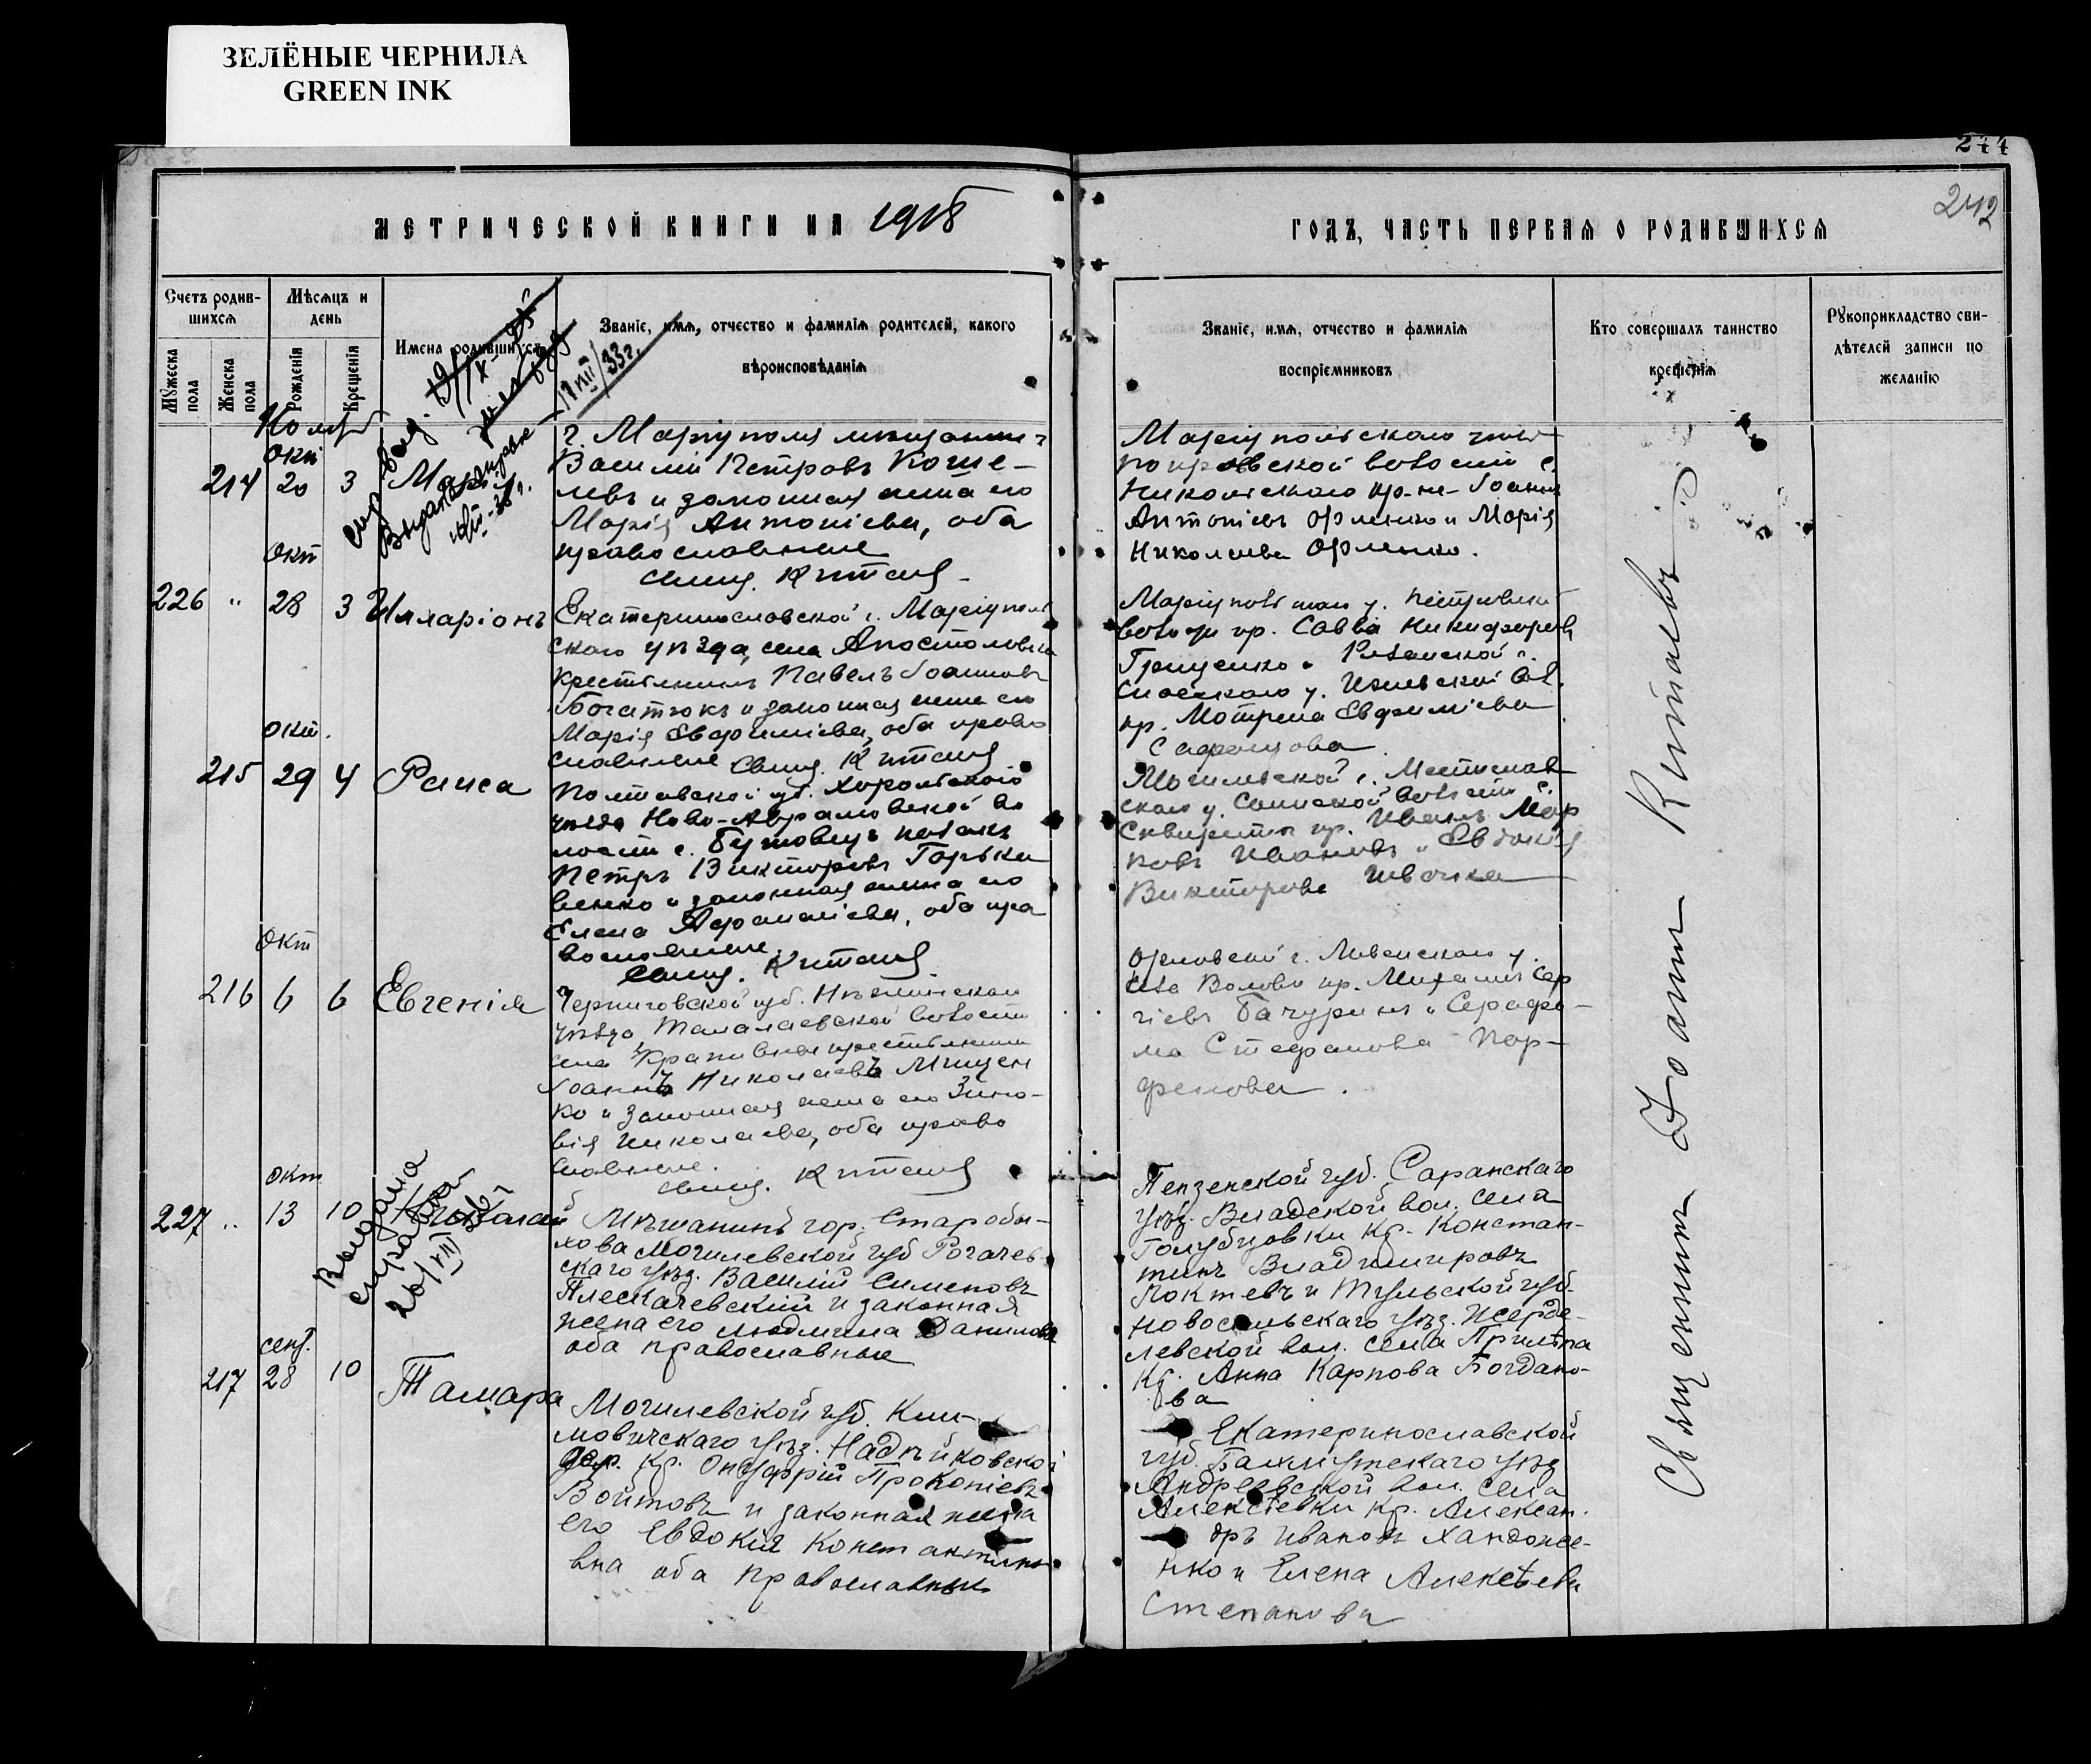 ЗЕЛЁНЫЕ ЧЕРНИЛА
GREEN INK
244
242
МЕТРИЧЕСКОЙ КНИГИ НА 1918
ГОДЪ, ЧАСТЬ ПЕРВАЯ О РОДИВШИХСЯ
Счетъ родив-
шихся
Мѣсяцъ и
день
Мужеска
пола
Женска
пола
Рожденія
Крещенія
Имена родившихсъ
Званіе, имя, отчество и фамилія родителей, какого
вѣроисповѣданія
Званіе, имя, отчество и фамилія
воспріемниковъ
Кто совершалъ таинство
крещенія
Рукоприкладство сви-
дѣтелей записи по
желанію
окт
214 20 3
г. Маріуполя мѣщанинъ
Василій Петровъ Коше-
левъ и законная жена его
Марія Антоніева, оба
православные
Свящ. Китаевъ
Маріупольскаго
Покровской волости с.
Никольскаго кр-не Іоаннъ
Антоніевъ Орленко и Марія
Николаева Орленко.
окт
226 " 28 3 Илларіонъ
Екатеринославской г. Маріуполь
скаго уѣзда, села Апостоловки
крестьянинъ Павелъ Іоанновъ
Богатюкъ и законная жена его
Марія Евфиміева, оба право
славные Свящ. Китаевъ
волости кр. Савва Никифоровъ
Грищенко и Рязанской г.
Спасскаго у. Ижевской вол.
кр. Мотрена Евфиміева
Сафонцова
окт.
215 29 4 Раиса
Полтавской губ. Хорольскаго
уѣзда Ново-Аврамовской во
лости с.
Петръ Викторовъ Горьки
венко и законная жена его
Елена Афанасіева, оба пра
вославные.
Свящ. Китаевъ
Могилевской г. Мстислав
скаго у. волости с.
кр. Иванъ Мар
ковъ Ивановъ и Евдокія
Викторова Швачка
окт
216 6 6 Евгенія
Черниговской губ. Нѣжинскаго
уѣзда, Талалаевской волости
села Крапивны крестьянинъ
Іоаннъ Николаевъ Мищен
ко и законная жена его Зино-
вія Николаева, оба право
славные.
Свящ. Китаевъ
Орловской г. Ливенскаго у.
села Волова кр. Михаилъ Сер
гіевъ Бачуринъ и Серафи-
ма Стефанова Пар-
фенова.
окт
227 " 13 10 Николай
Выдана
справка
26/VII
Мѣщанинъ гор. Старобы-
хова Могилевской губ Рогачев-
скаго уѣз. Василій Симеоновъ
Плескачевскій и законная
жена его Людмила Данилова
оба православные
Пензенской губ. Саранскаго
уѣз. Владской вол. села
Голубцовки кр. Констан-
тинъ Владимировъ
Локтевъ и Тульской губ.
Новосильскаго уѣз. Жерде-
левской вол. села Прилѣпа
кр. Анна Карпова Богдано-
ва
сент.
217 28 10 Тамара
Могилевской губ. Кли-
мовичскаго уѣз. Надѣйковской
дер. кр. Онуфрій Прокопіевъ
Войтовъ и законная жена
его Евдокія Константино-
вна оба православные
Екатеринославской
губ. Бахмутскаго уѣз
Андреевской вол. села
Алексѣевки кр. Алексан-
дръ Ивановъ Хандоже-
нко и Елена Алексѣева
Степанова
Священникъ Іоаннъ Китаевъ